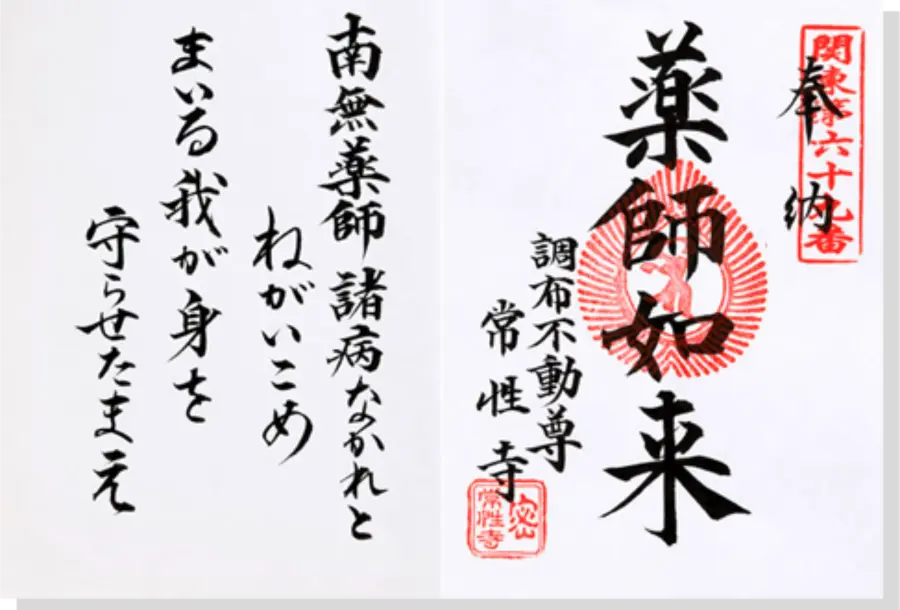 関東第六十九番
奉納
薬師如来
調布不動尊
常性寺
密
常性寺
南無薬師 諸病なかれと
ねがいこめ
まいる我が身を
守らせたまえ